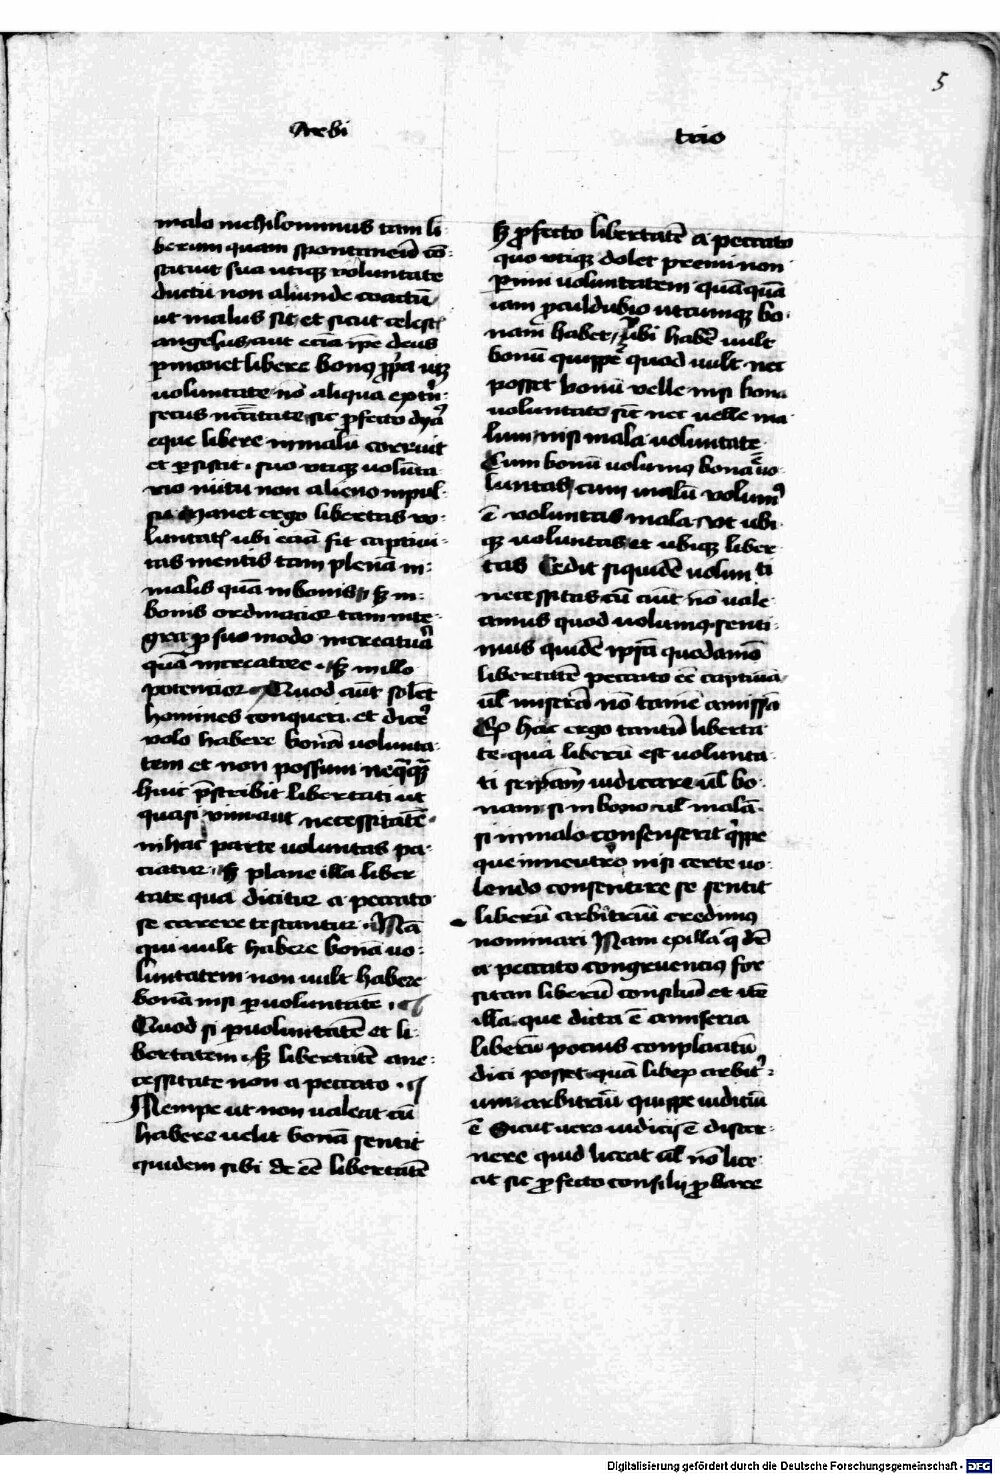 5
Arbi
trio
malo nichilominus tam li
berum quam spontaneū cō
stituit sua utiqꝫ voluntate
ductū non aliunde coactū
ut malus sit et sicut celest
angelus aut eciā ipe deus
ꝑmanet libere bonꝰ ꝓpa uiꝫ
voluntate nō aliqua extn
secus nccitate sic ꝓfecto dya
eque libere in malū corruit
et ꝑsistit suo utiqꝫ volūta
rio nutu non alieno inpul
su Manet ergo libertas vo
luntatꝭ ubi eciā fit captiui
tas mentis tam plena in
malis quā in bonis sꝫ in
bonis ordinacior tam inte
gra ꝓ suo modo in creatura
quā in creatore sꝫ in illo
potencior Quod aūt solēt
homines conqueri et dice
volo habere bonā volunta
tem et non possum neqͣqͣ
huic pscribit libertati ut
quasi vim aut necessitatē
in hac parte voluntas pa
ciatur sꝫ plane illa liber
tate qua dicitur a peccato
se carere testantur Nā
qui vult habere bonā vo
luntatem non vult habere
bonā nisi ꝑ voluntatē
Quod si ꝑ voluntatē et li
bertatem sꝫ libertatē a ne
cessitate non a peccato
Nempe ut non ualeat cū
habere uelit bonā sentit
quidem sibi de eē libertatē
sꝫ ꝓfecto libertatē a peccato
quo utiqꝫ dolet premi non
ꝑimi voluntatem quāquā
iam ꝓculdubio utcumqꝫ bo
nam habet ubi habē uult
bonū quippe quod uult nec
posset bonū velle nisi bona
voluntate sic nec uelle ma
lum nisi mala voluntate
Cum bonū volumꝰ bona ē vo
luntas cum malū volumꝰ
ē voluntas mala ubi
qꝫ voluntas et ubiqꝫ liber
tas Cedit siquidē uolunti
necessitas cū aūt nō uale
amus quod uolumꝰ senti
mus quidē ipsā quodamō
libertatē peccato eē captiuā
ul miserā nō tamē amissā
Ex hac ergo tantū liberta
te qua liberū est volunta
ti seipam iudicare ul bo
nam si in bono ul malā
si in malo consenserit qippe
que in neutro nisi certe vo
lendo consentire se sentit
liberū arbitriū credimꝰ
nominari Nam ex illa q dē
a peccato congruencius for
sitan liberū consiliū et itē
illa que dicta ē a miseria
liberū pocius complacitū
dici posset quā liberꝝ arbit
um arbitriū quippe iudiciū
ē Sicut uero iudicij ē discer
nere quid liceat ul nō lice
at sic ꝓfecto consilij ꝓbare
Digitalisierung gefördert durch die Deutsche Forschungsgemeinschaft - DFG